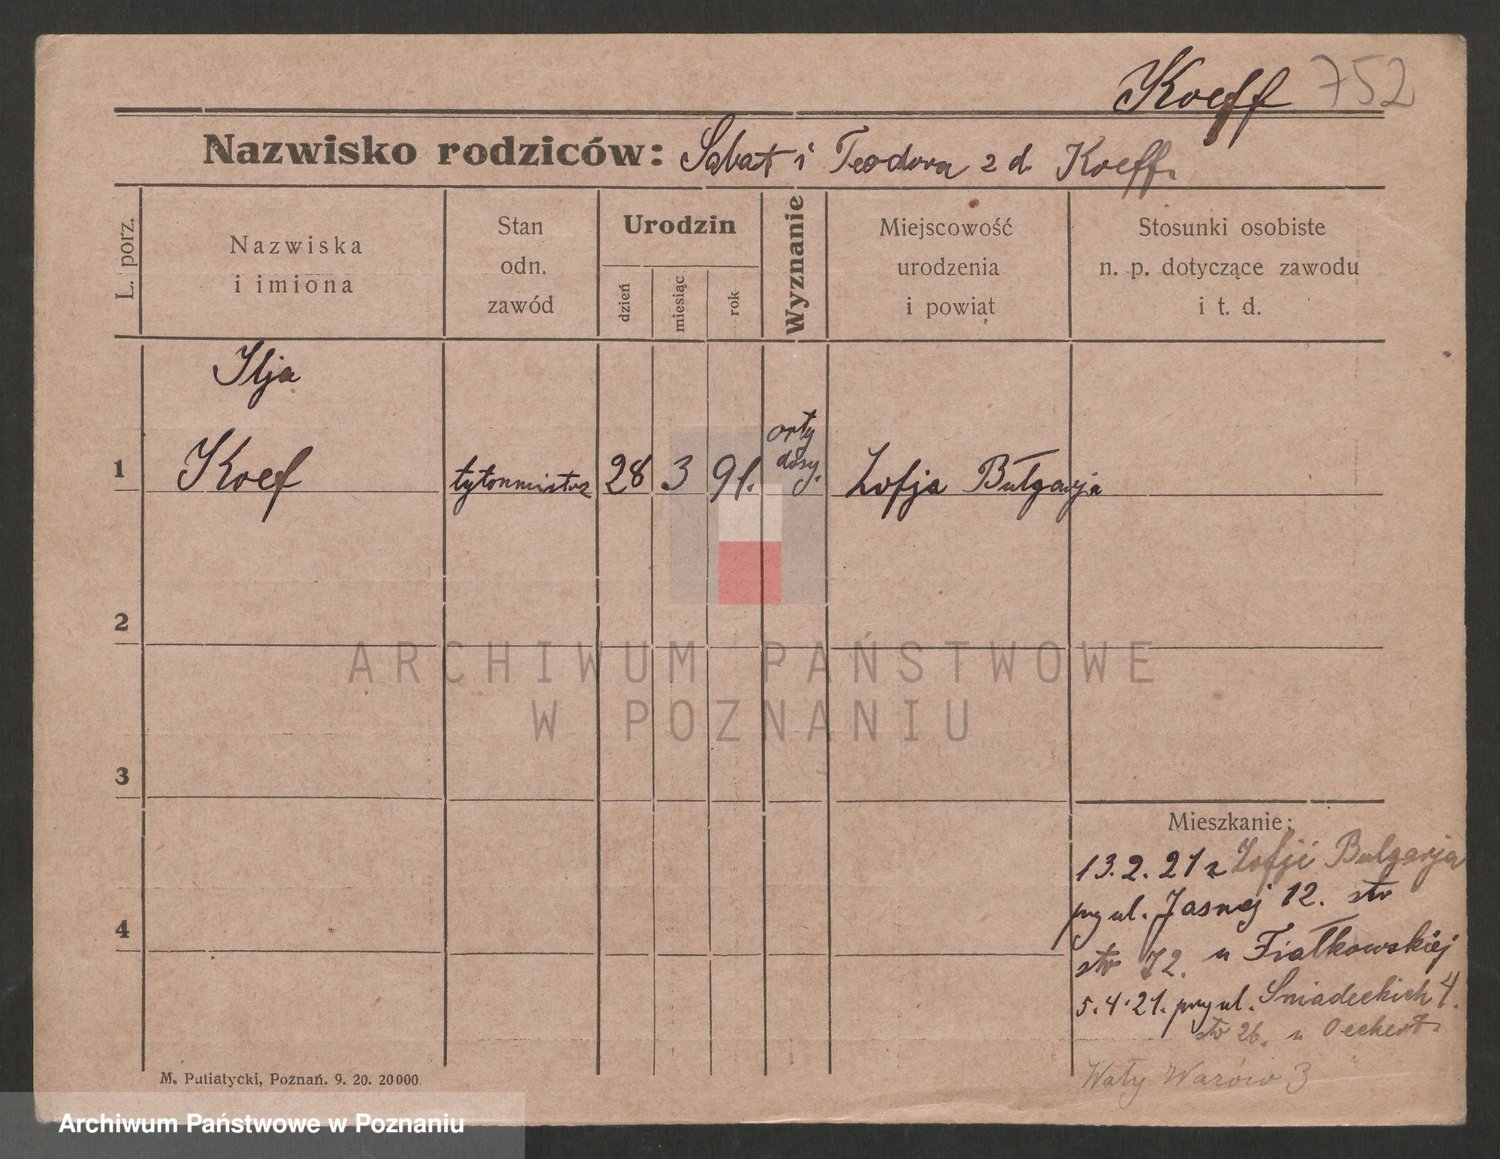 Koeff 752
Nazwisko rodziców: Sabat i Teodora z d. Koeff.
L. porz.
Nazwiska
i imiona
Stan
odn.
zawód
Urodzin
dzień
miesiąc
rok
Wyznanie
Miejscowość
urodzenia
i powiat
Stosunki osobiste
n. p. dotyczące zawodu
i t. d.
Ilja
1 Koef 28 3 91. Zofja Bułgarja
2
3
4
Mieszkanie:
13.2.21 z Zofji Bułgarja
przy ul. Jasnej 12. str
str 12. u Fiałkowskiej
5.4.21. przy ul. Śniadeckich 4.
str 26. u Oeckert.
Wały 3
M. Putiatycki, Poznań. 9. 20. 20000.
ARCHIWUM PAŃSTWOWE
W POZNANIU
Archiwum Państwowe w Poznaniu